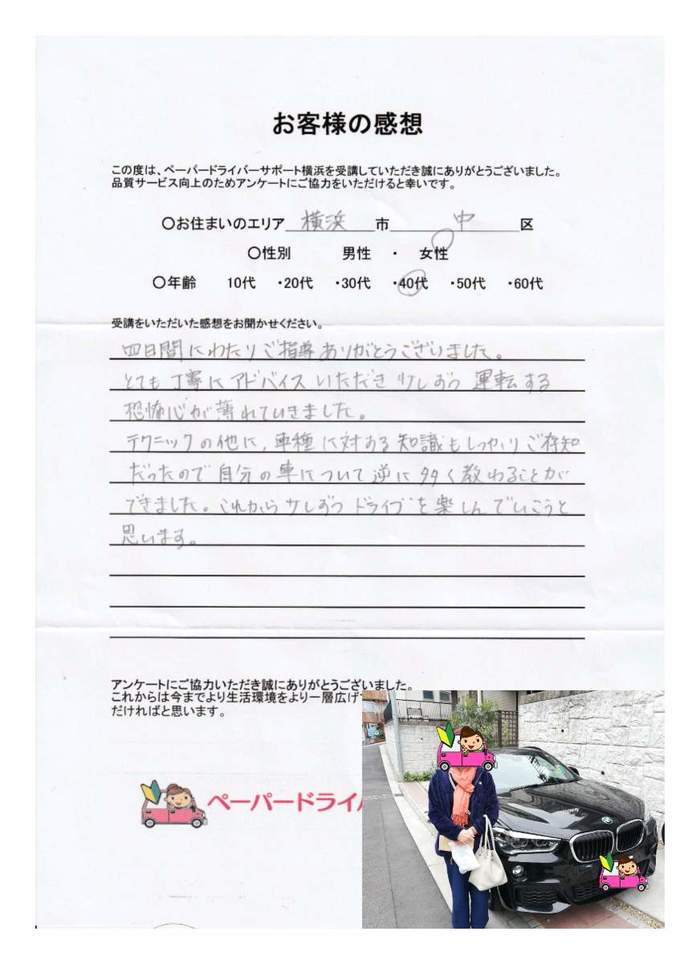 お客様の感想
この度は、ペーパードライバーサポート横浜を受講していただき誠にありがとうございました。
品質サービス向上のためアンケートにご協力をいただけると幸いです。
〇お住まいのエリア 横浜 市 中 区
〇性別 男性 ・ 女性
〇年齢 10代 ・20代 ・30代 ・40代 ・50代 ・60代
受講をいただいた感想をお聞かせください。
四日間にわたりご指導ありがとうございました。
とても丁寧にアドバイスいただき少しずつ運転する
恐怖心が薄れていきました。
テクニックの他に、車種に対する知識もしっかりご存知
だったので自分の車について逆に多く教わることが
できました。これから少しずつドライブを楽しんでいこうと
思います。
アンケートにご協力いただき誠にありがとうございました。
これからは今までより生活環境をより一層広げ
だければと思います。
ペーパードライ